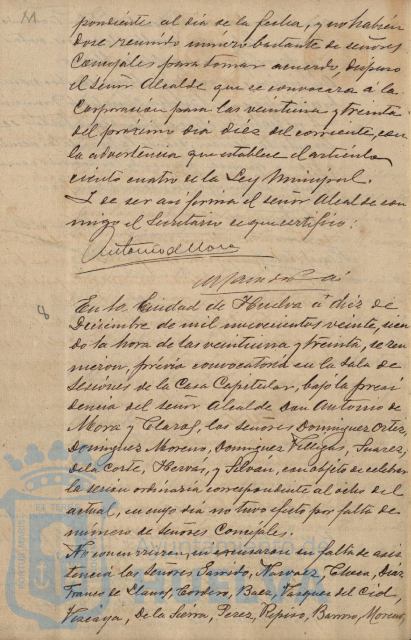 pondiente al día de la fecha, y no habién
dose reunido número bastante de señores
Concejales para tomar acuerdo, dispuso
el Señor Alcalde que se convocara a la
Corporación para las veintiuna y treinta
del próximo día diez del corriente, con
la advertencia que establece el artículo
ciento cuatro de la Ley Municipal.
Y de ser así firma el señor Alcalde con
migo el Secretario de que certifico:
Antonio de Mora
8
En la Ciudad de Huelva á diez de
Diciembre de mil novecientos veinte, sien
do la hora de las veintiuna y treinta, se reu
nieron, previa convocatoria en la Sala de
Sesiones de la Casa Capitular, bajo la presi
dencia del señor Alcalde Don Antonio de
Mora y Claros, los señores Dominguez Ortiz,
Dominguez Moreno, Dominguez Villegas, Suarez,
de la Corte, Hervás, y Siloan, con objeto de celebrar
la sesión ordinaria correspondiente al ocho del
actual, en cuyo día no tuvo efecto por falta de
número de señores Concejales.
No concurrieron, ni excusaron su falta de asis
tencia los Señores Garrido, Narvaez, Diaz
Franco de Llanos, Cordero, Baez, Vazquez del Cid
Vizcaya, De la Sierra, Perez, Moreno,